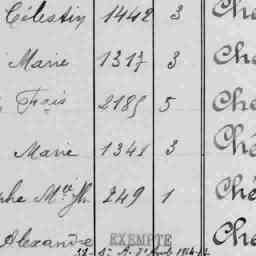 Célestin 1442 3 Che
Marie 1317 3 Che
Frçois 2185 5 Che
Marie 1341 3 Ché
phe Mie Jh 249 1 Ché
Alexandre EXEMPTE Che